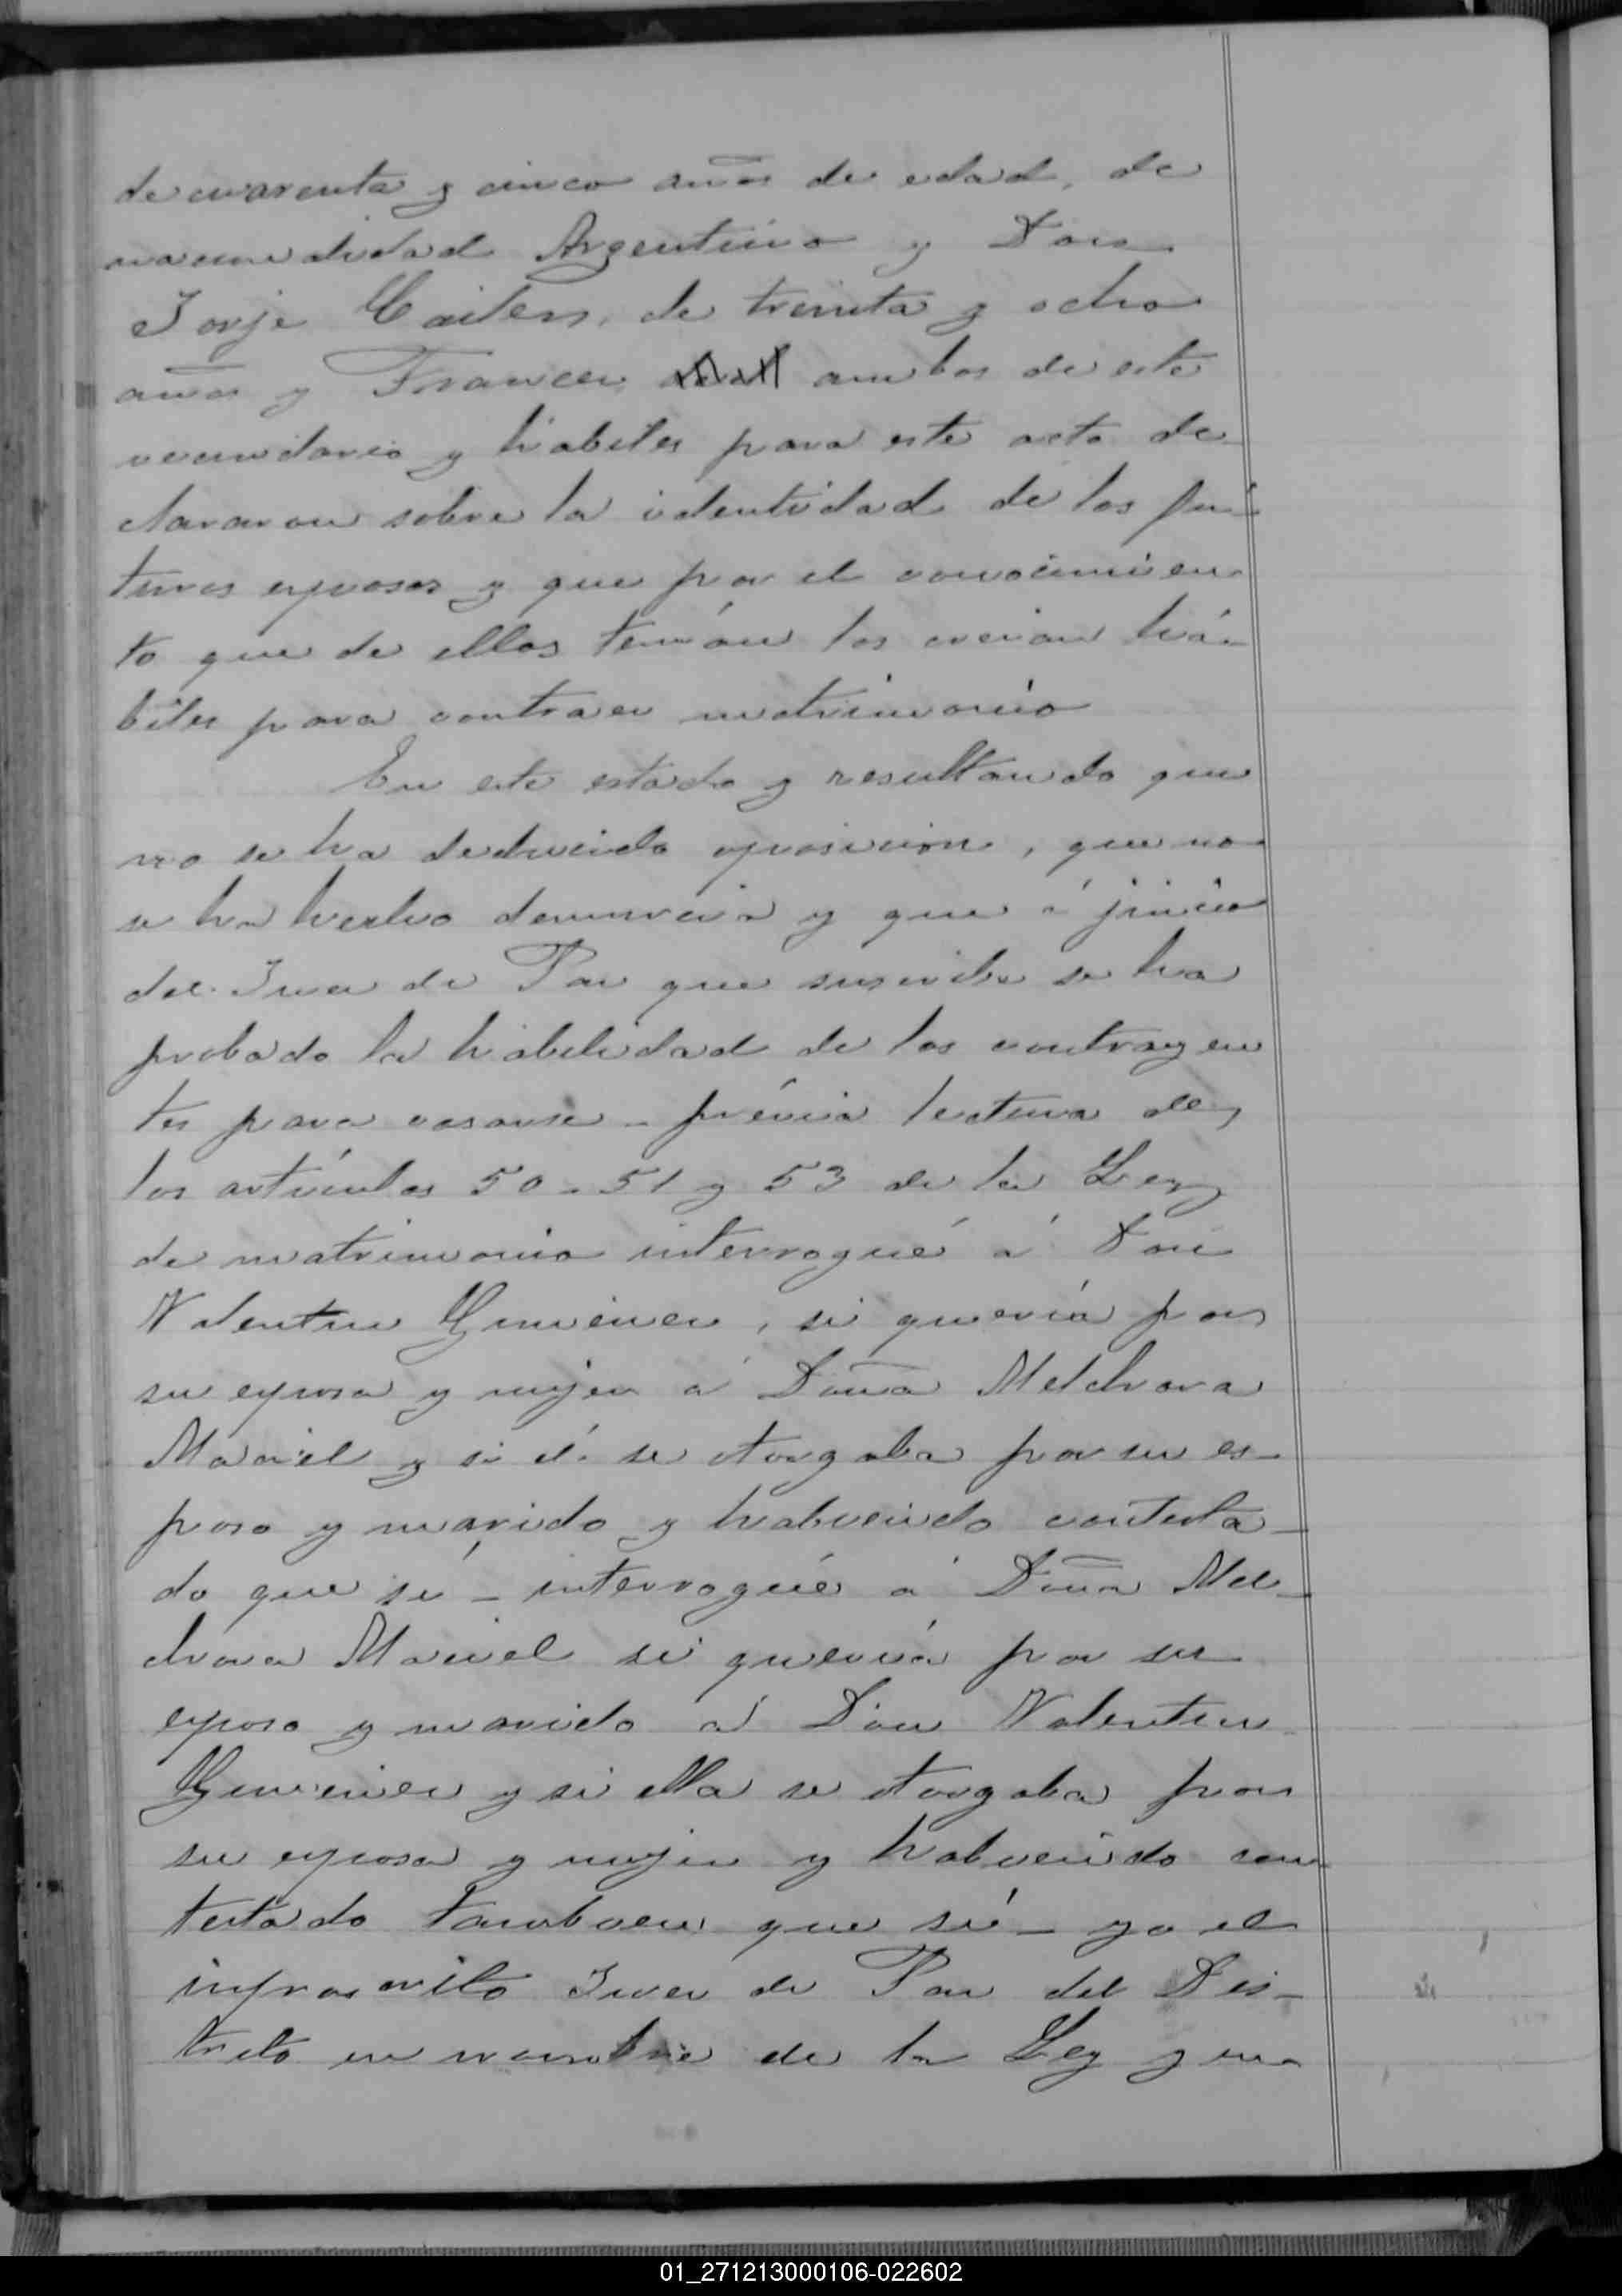 de cuarenta y cinco años de edad, de
nacionalidad Argentino y Don
Jorje Cailen, de treinta y ocho
años y Frances ambos de este
vecindario y habiles para este acto de
clararon sobre la identidad de los fu-
turos esposos y que por el conocimien
to que de ellos tenían los creian há-
biles para contraer matrimonio
En este estado y resultando que
no se ha deducido oposicion, que no
se ha hecho denuncia y que á juicio
del Juez de Paz que suscribe se ha
probado la habilidad de los contrayen
tes para casarse - prévia lectura de
los artículos 50 - 51 y 53 de la Ley
de matrimonio interrogué á Don
Valentin Gimenez, si quería por
su esposa y mujer á Doña Melchora
Maciel y si él se otorgaba por su es-
poso y marido y habiendo contesta-
do que sí - interrogué á Doña Mel-
chora Maciel si quería por su
esposo y marido á Don Valentin
Gimenez y si ella se otorgaba por
su esposa y mujer y habiendo con
testado tambien que sí - yo el
infrascrito Juez de Paz del Dis-
trito en nombre de la Ley y en
01_271213000106-022602